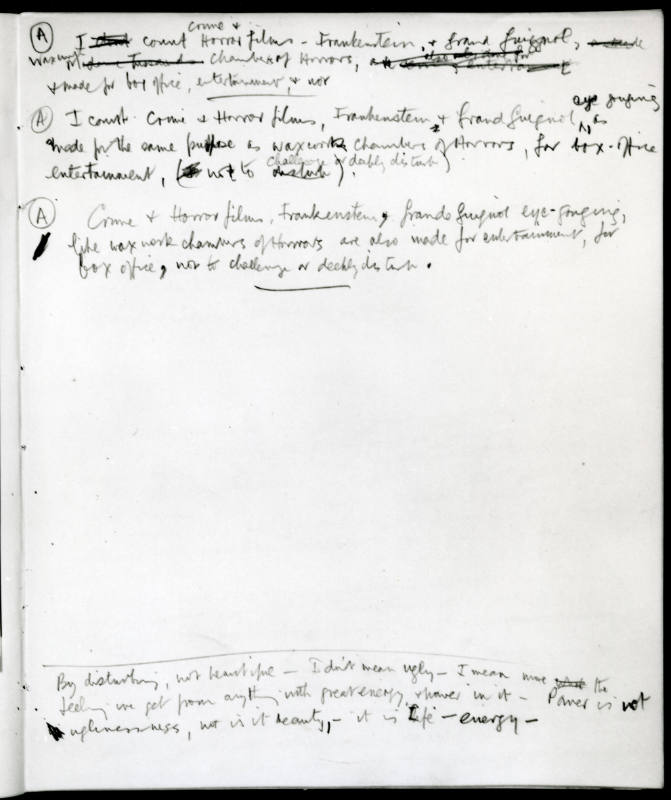 crime +
(A) I count Horror films - Frankenstein, + Grand Guignol,
waxwork Chambers of Horrors,
+ made for box office, entertainment, + not
(A) I count Crime + Horror films, Frankenstein + Grand Guignol, eye gouging as
made for the same purpose as waxworks Chambers of Horrors, for box-office
challenge or deeply disturb
entertainment, (not to disturb).
(A) Crime + Horror films, Frankenstein, Grande Guignol eye-gouging,
like waxwork chambers of Horrors are also made for entertainment, for
box office, not to challenge or deeply disturb.
By disturbing, not beautiful — I don't mean ugly — I mean more the
feeling we get from anything with great energy, + power in it — Power is not
uglinessness, nor is it beauty, - it is life — energy —